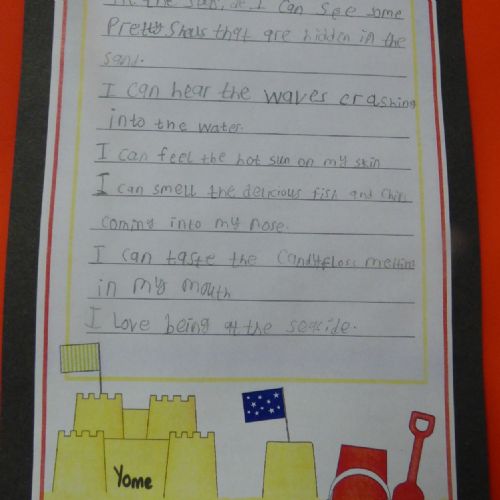 the sun, I can see some
Pretty Shells that are hidden in the
sand.
I can hear the waves crashing
into the water.
I can feel the hot sun on my skin
I can smell the delicious fish and chips
coming into my nose.
I can taste the candyfloss melting
in my mouth
I Love being at the seaside.
Yome